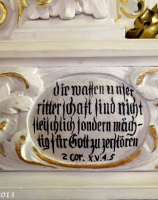 die waffen unser
ritterschaft sind nicht
fleischlich sondern mäch-
tig für Gott zu zerstören
2 Cor. X.V.4.5
2013